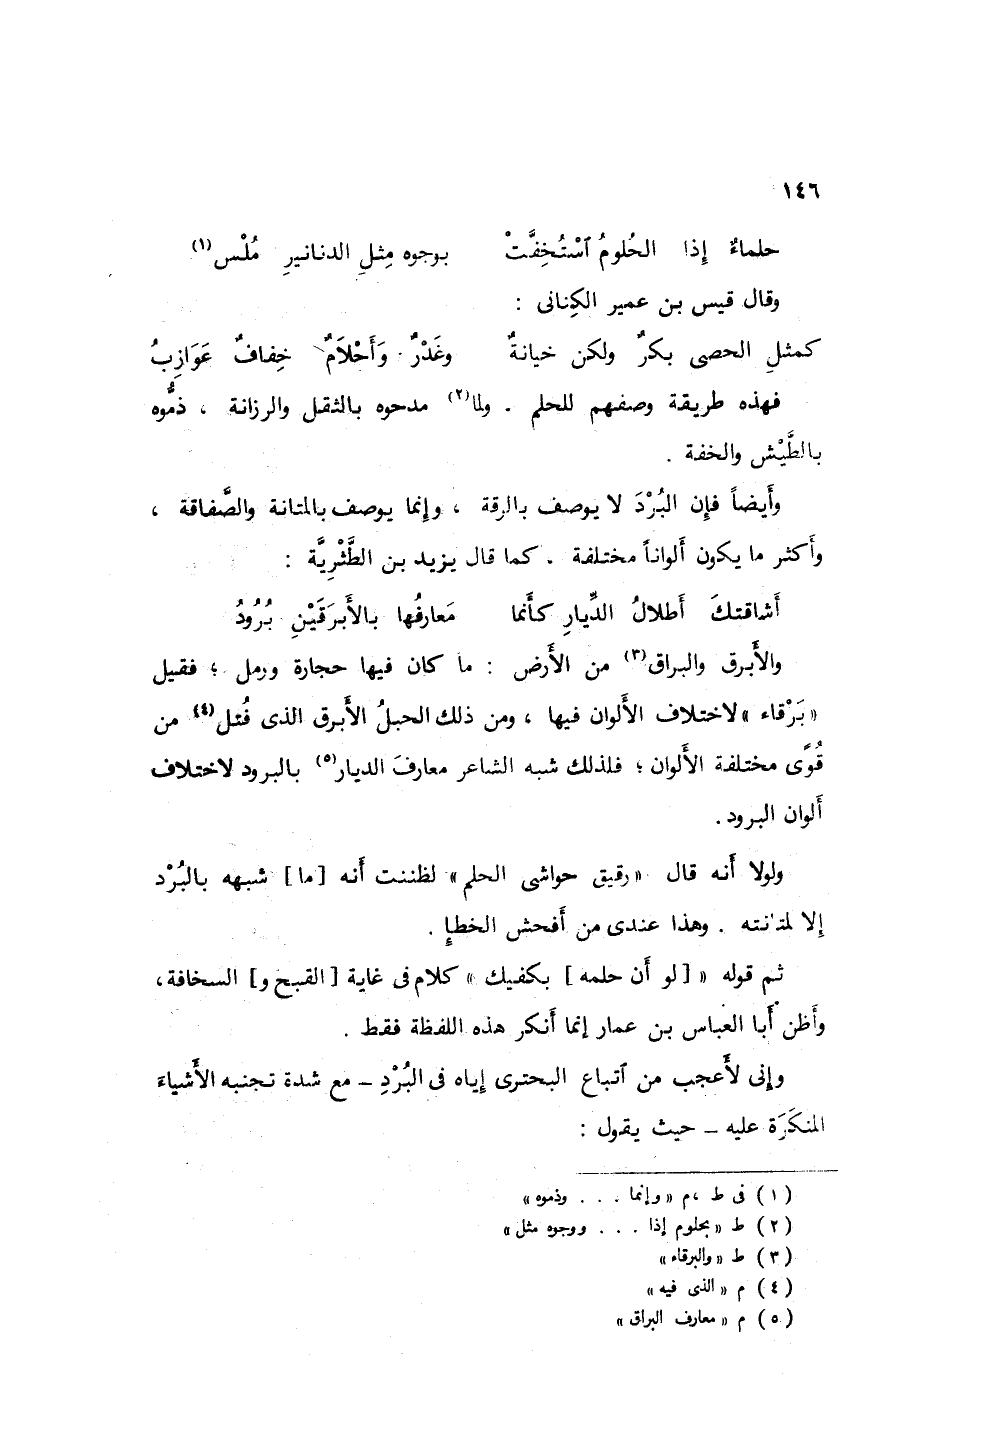 ١٤٦
حلماءٌ إِذا الحُلومُ ٱسْتُخِفَّتْ بوجوه مِثلِ الدنانيرِ مُلْس(١)
وقال قيس بن عمير الكِنانى :
كمثلِ الحصى بكرٌ ولكن خيانةٌ وغَدْرٌ وَأَحْلاَمٌ خِفافٌ عَوَازِبُ
فهذه طريقة وصفهم للحلم . ولما(٢) مدحوه بالثقل والرزانة ، ذمُّوه
بالطَّيْش والخفة .
وأَيضاً فإِن البُرْدَ لا يوصف بالرقة ، وإِنما يوصف بالمتانة والصَّفاقة ،
وأَكثر ما يكون أَلواناً مختلفة . كما قال يزيد بن الطَّثْرِيَّة :
أَشاقتكَ أَطلالُ الدِّيارِ كأَنما مَعارفُها بالأَبرَقَيْنِ بُرُودُ
والأَبرق والبراق(٣) من الأَرض : ما كان فيها حجارة ورمل ؛ فقيل
« بَرْقاء » لاختلاف الأَلوان فيها ، ومن ذلك الحبلُ الأَبرق الذى فُتل(٤) من
قُوًى مختلفة الأَلوان ؛ فلذلك شبه الشاعر معارفَ الديار(٥) بالبرود لاختلاف
أَلوان البرود .
ولولا أَنه قال « رقيق حواشى الحلم » لظننت أَنه [ ما ] شبهه بالبُرْد
إِلا لمتانته . وهذا عندى من أَفحش الخطإِ .
ثم قوله « [ لو أن حلمه ] بكفيك » كلام فى غاية [ القبح و ] السخافة ،
وأَظن أَبا العباس بن عمار إِنما أَنكر هذه اللفظة فقط .
وإِنى لأَعجب من ٱتباع البحترى إِياه فى البُرْدِ – مع شدة تجنبه الأَشياءَ
المنكَرَة عليه – حيث يقول :
( ١ ) فى ط ، م « وإنما . . . وذموه »
( ٢ ) ط « بحلوم إذا . . . ووجوه مثل »
( ٣ ) ط « والبرقاء »
( ٤ ) م « الذى فيه »
( ٥ ) م « معارف البراق »